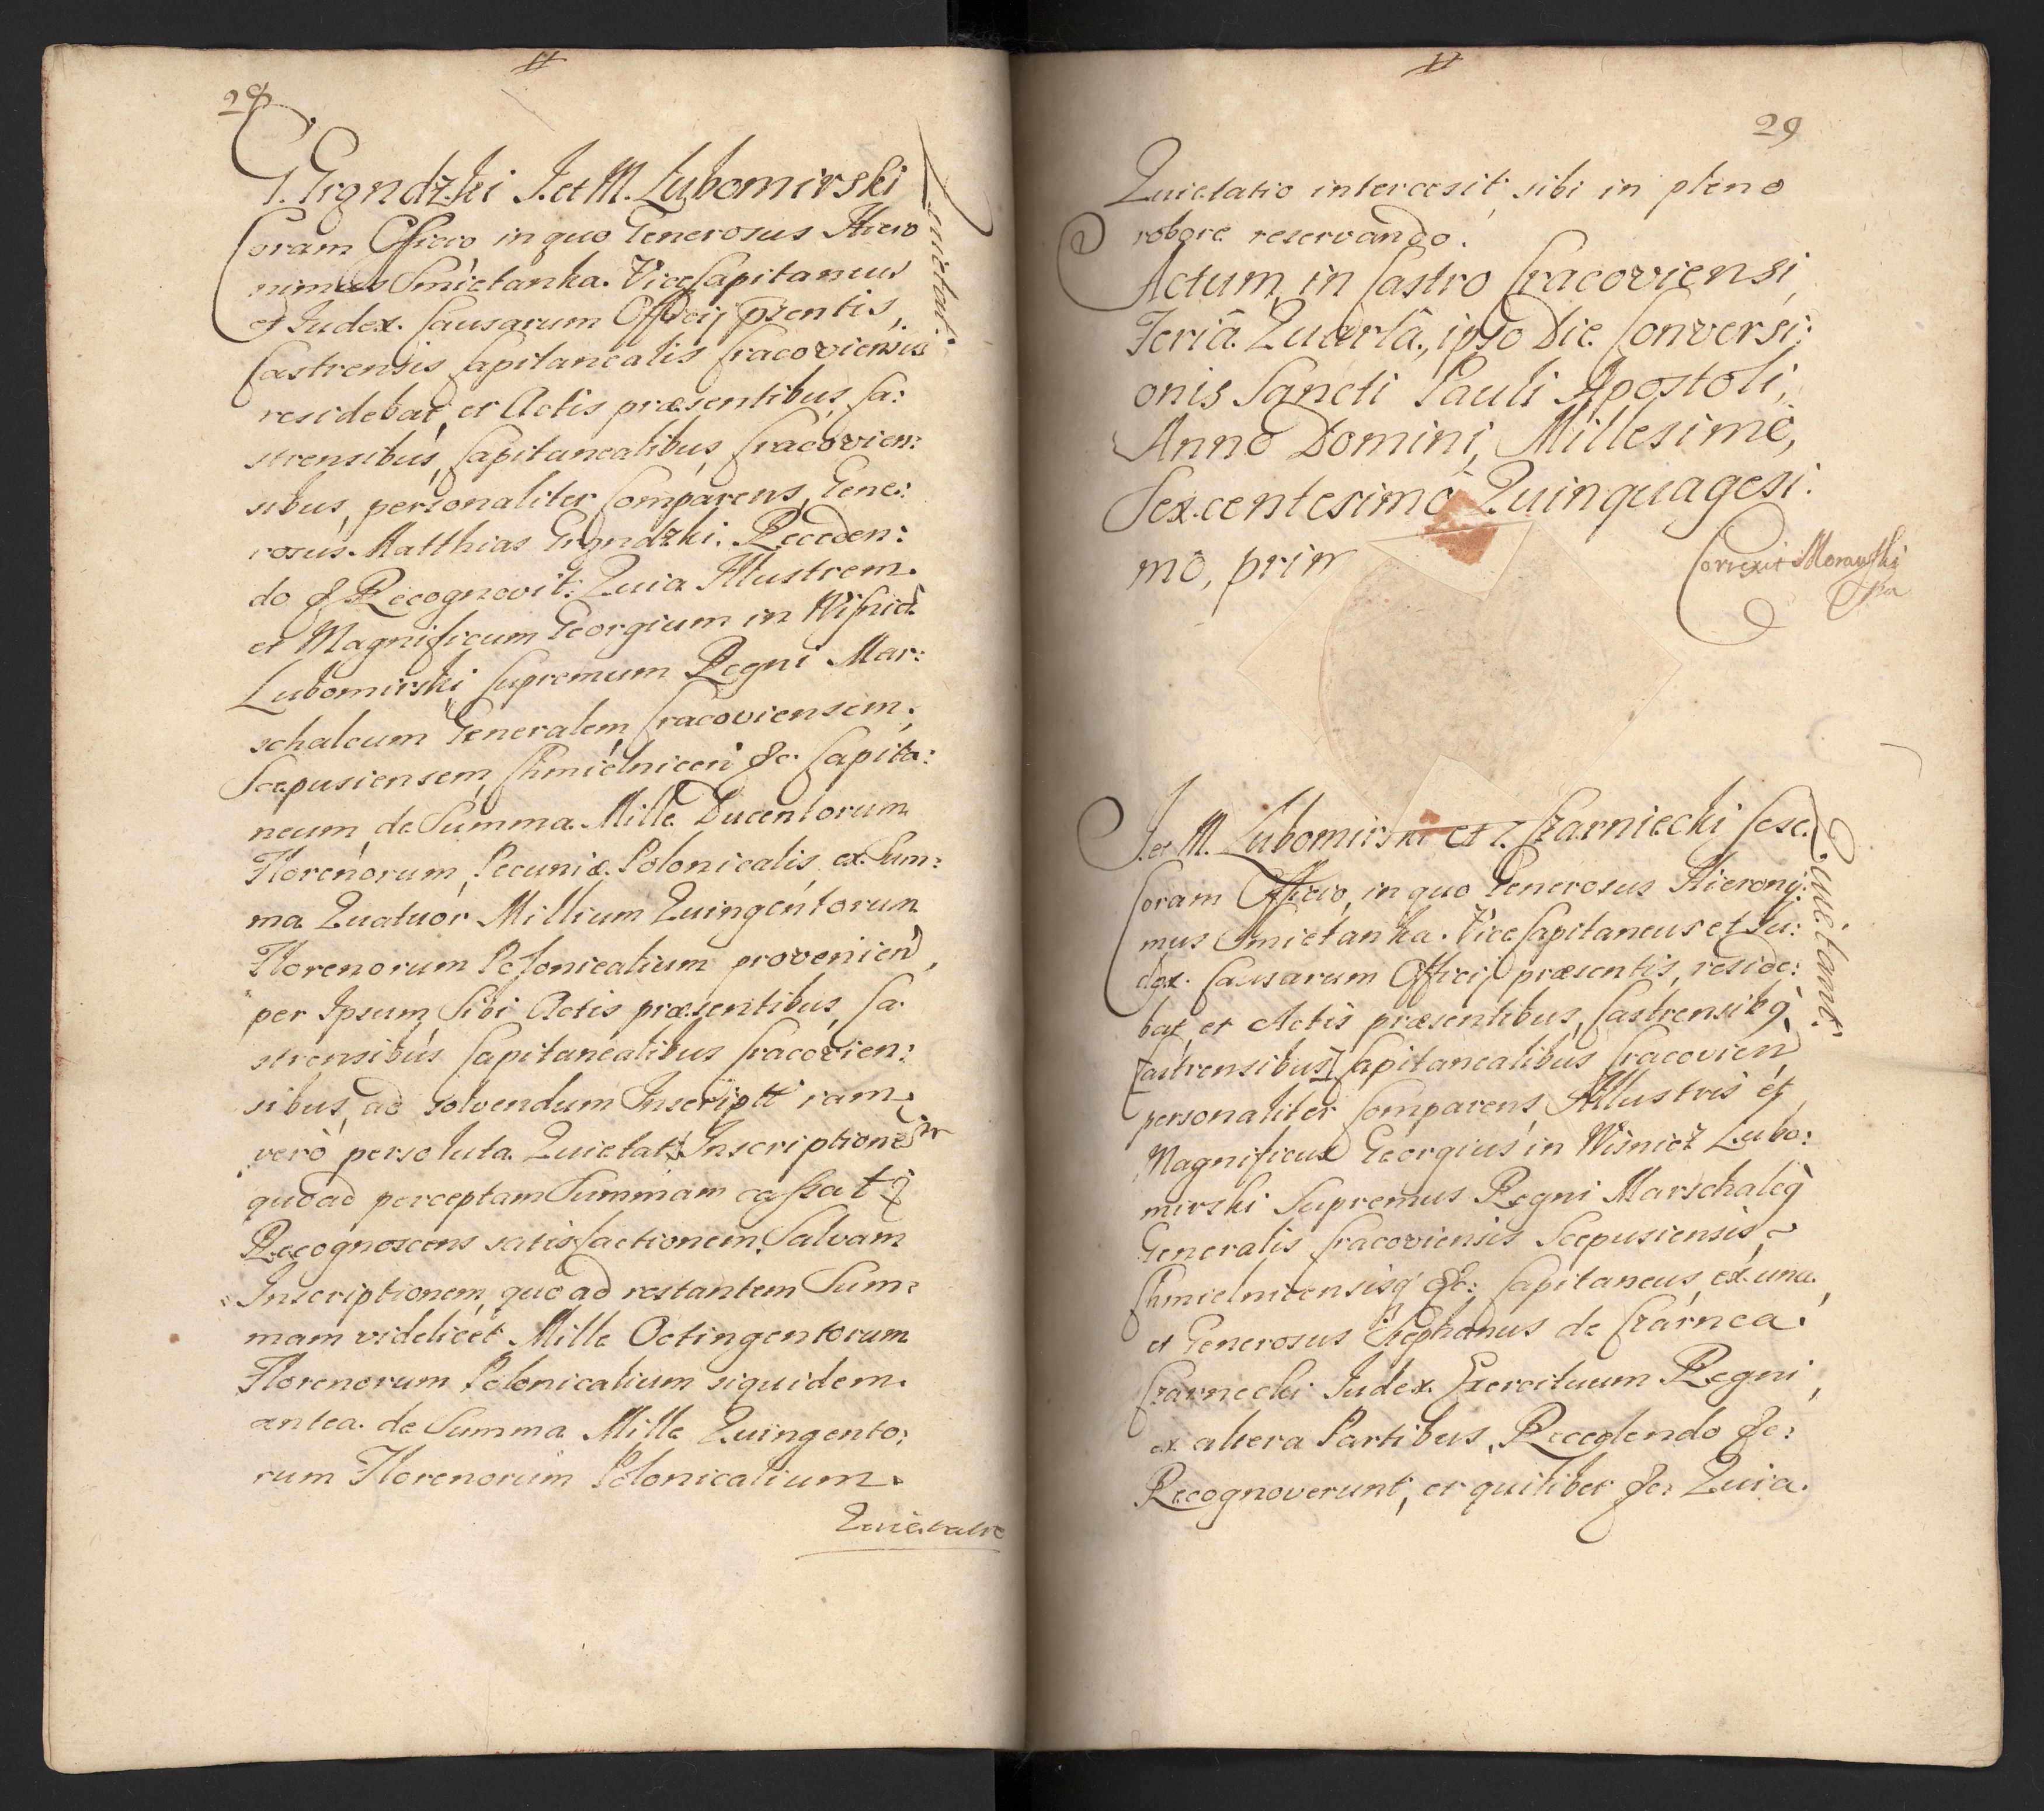 28
G. Grądzki I. et M. Lubomirski
Quietat:
Coram Officio in quo Generosus Hiero
nimus Smietanka. ViceCapitaneus
et Iudex. Causarum Officij pſentis,
Castrensis Capitanealis Cracoviensis
residebat, et Actis præsentibus, Ca:
strensibus, Capitanealibus, Cracovien:
sibus, personaliter Comparens, Gene:
rosus. Matthias Grądzki. Receden:
do & Recognovit: Quia Illustrem.
et Magnificum Georgium in Wiſnicz
Lubomirski, Supremum Regni Mar:
schalcum Generalem, Cracoviensem,
Scepusiensem, Chmielnicen &c. Capita:
neum, de Summa. Mille. Ducentorum
Florenorum, Pecuniæ. Polonicalis, ex. Sum:
ma Quatuor Millium Quingentorum
Florenorum Polonicalium provenien,
per Ipsum, Sibi Actis præsentibus, Ca
strensibus Capitanealibus Cracovien:
sibus, ad solvendum Inscript iam
verò persoluta. Quietat, Inscriptionē
quoad perceptam Summam caſsatq
Recognoscens satisfactionem, Salvam
Inscriptionem, quoad restantem Sum:
mam videlicet Mille Octingentorum
Florenorum Polonicalium siquidem.
antea. de Summa Mille Quingento:
rum Florenorum Polonicalium.
Quietatio
29
Quietatio intercesit, sibi in pleno
robore reservando.
Actum, in Castro Cracoviensi,
Feriâ. Quartâ, ipso Die Conversi:
onis Sancti Pauli Apostoli,
Anno Domini, Millesimô,
Sexcentesimô Quinquagesi:
mô, prim
Correxit Morawſki
I. et M. Lubomirski et G. Czarniecki sese.
Quietant:
Coram Officio, in quo Generosus Hierony:
mus Smietanka. ViceCapitaneus et Iu:
dex. Causarum Officij præsentis, reside:
bat, et Actis præsentibus, Castrensibq
[castrensibus] Capitanealibus Cracovien
personaliter Comparens, Illustris et
Magnificus Georgius in Wisnicz Lubo:
mirski Supremus Regni Marschalcq
Generalis Cracoviensis Scepusiensis
Chmielnicensisq &c: Capitaneus, ex. una.
et Generosus Stephanus de Czarnca.
Czarnecki Iudex. Exercituum Regni,
ex altera Partibus, Recedendo &c:
Recognoverunt, et quilibet &c: Quia.